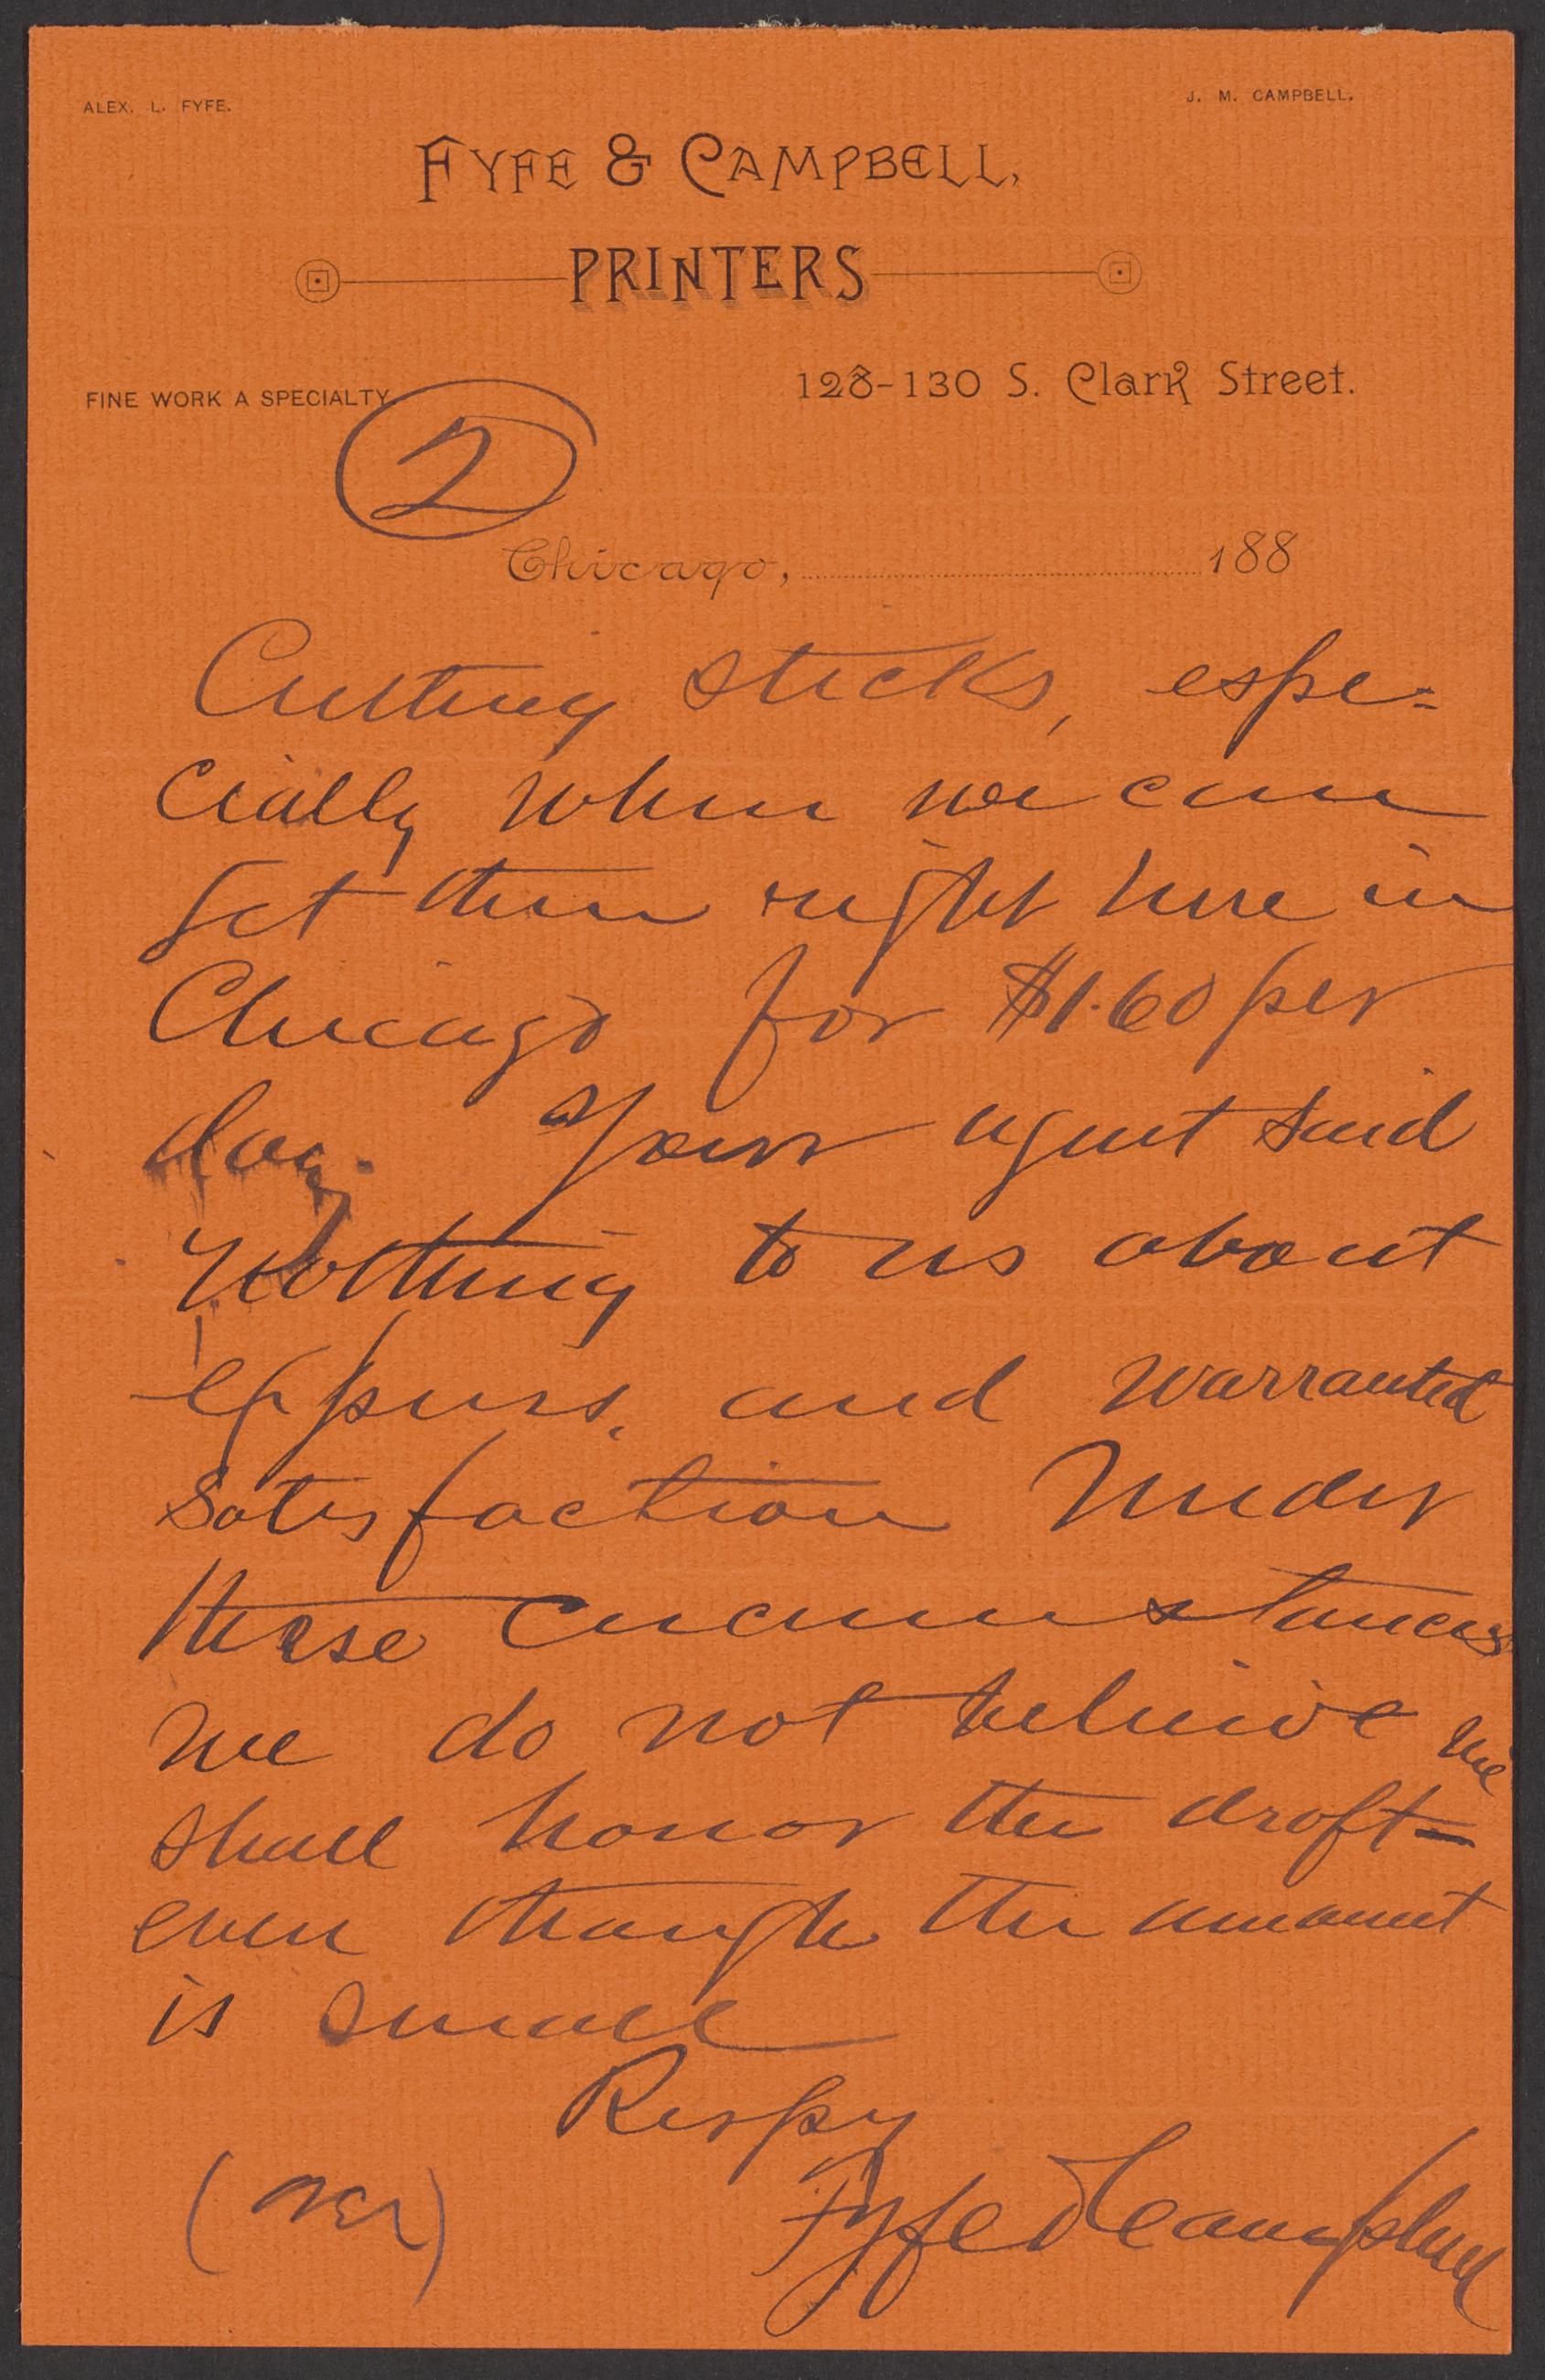 ALEX. L. FYFE.
J. M. CAMPBELL.
FYFE & CAMPBELL,
PRINTERS
FINE WORK A SPECIALTY
128-130 S. Clark Street.
2
Chicago, 188
Cutting sticks, espe=
cially when we can
get them right here in
Chicago for $1.60 per
doz. Your agent said
Nothing to us about
expense, and warranted
satisfaction Under
these circumstances
we do not believe we
shall honor the draft—
even though the amount
is small
Respy
Fyfe & Campbell
(over)